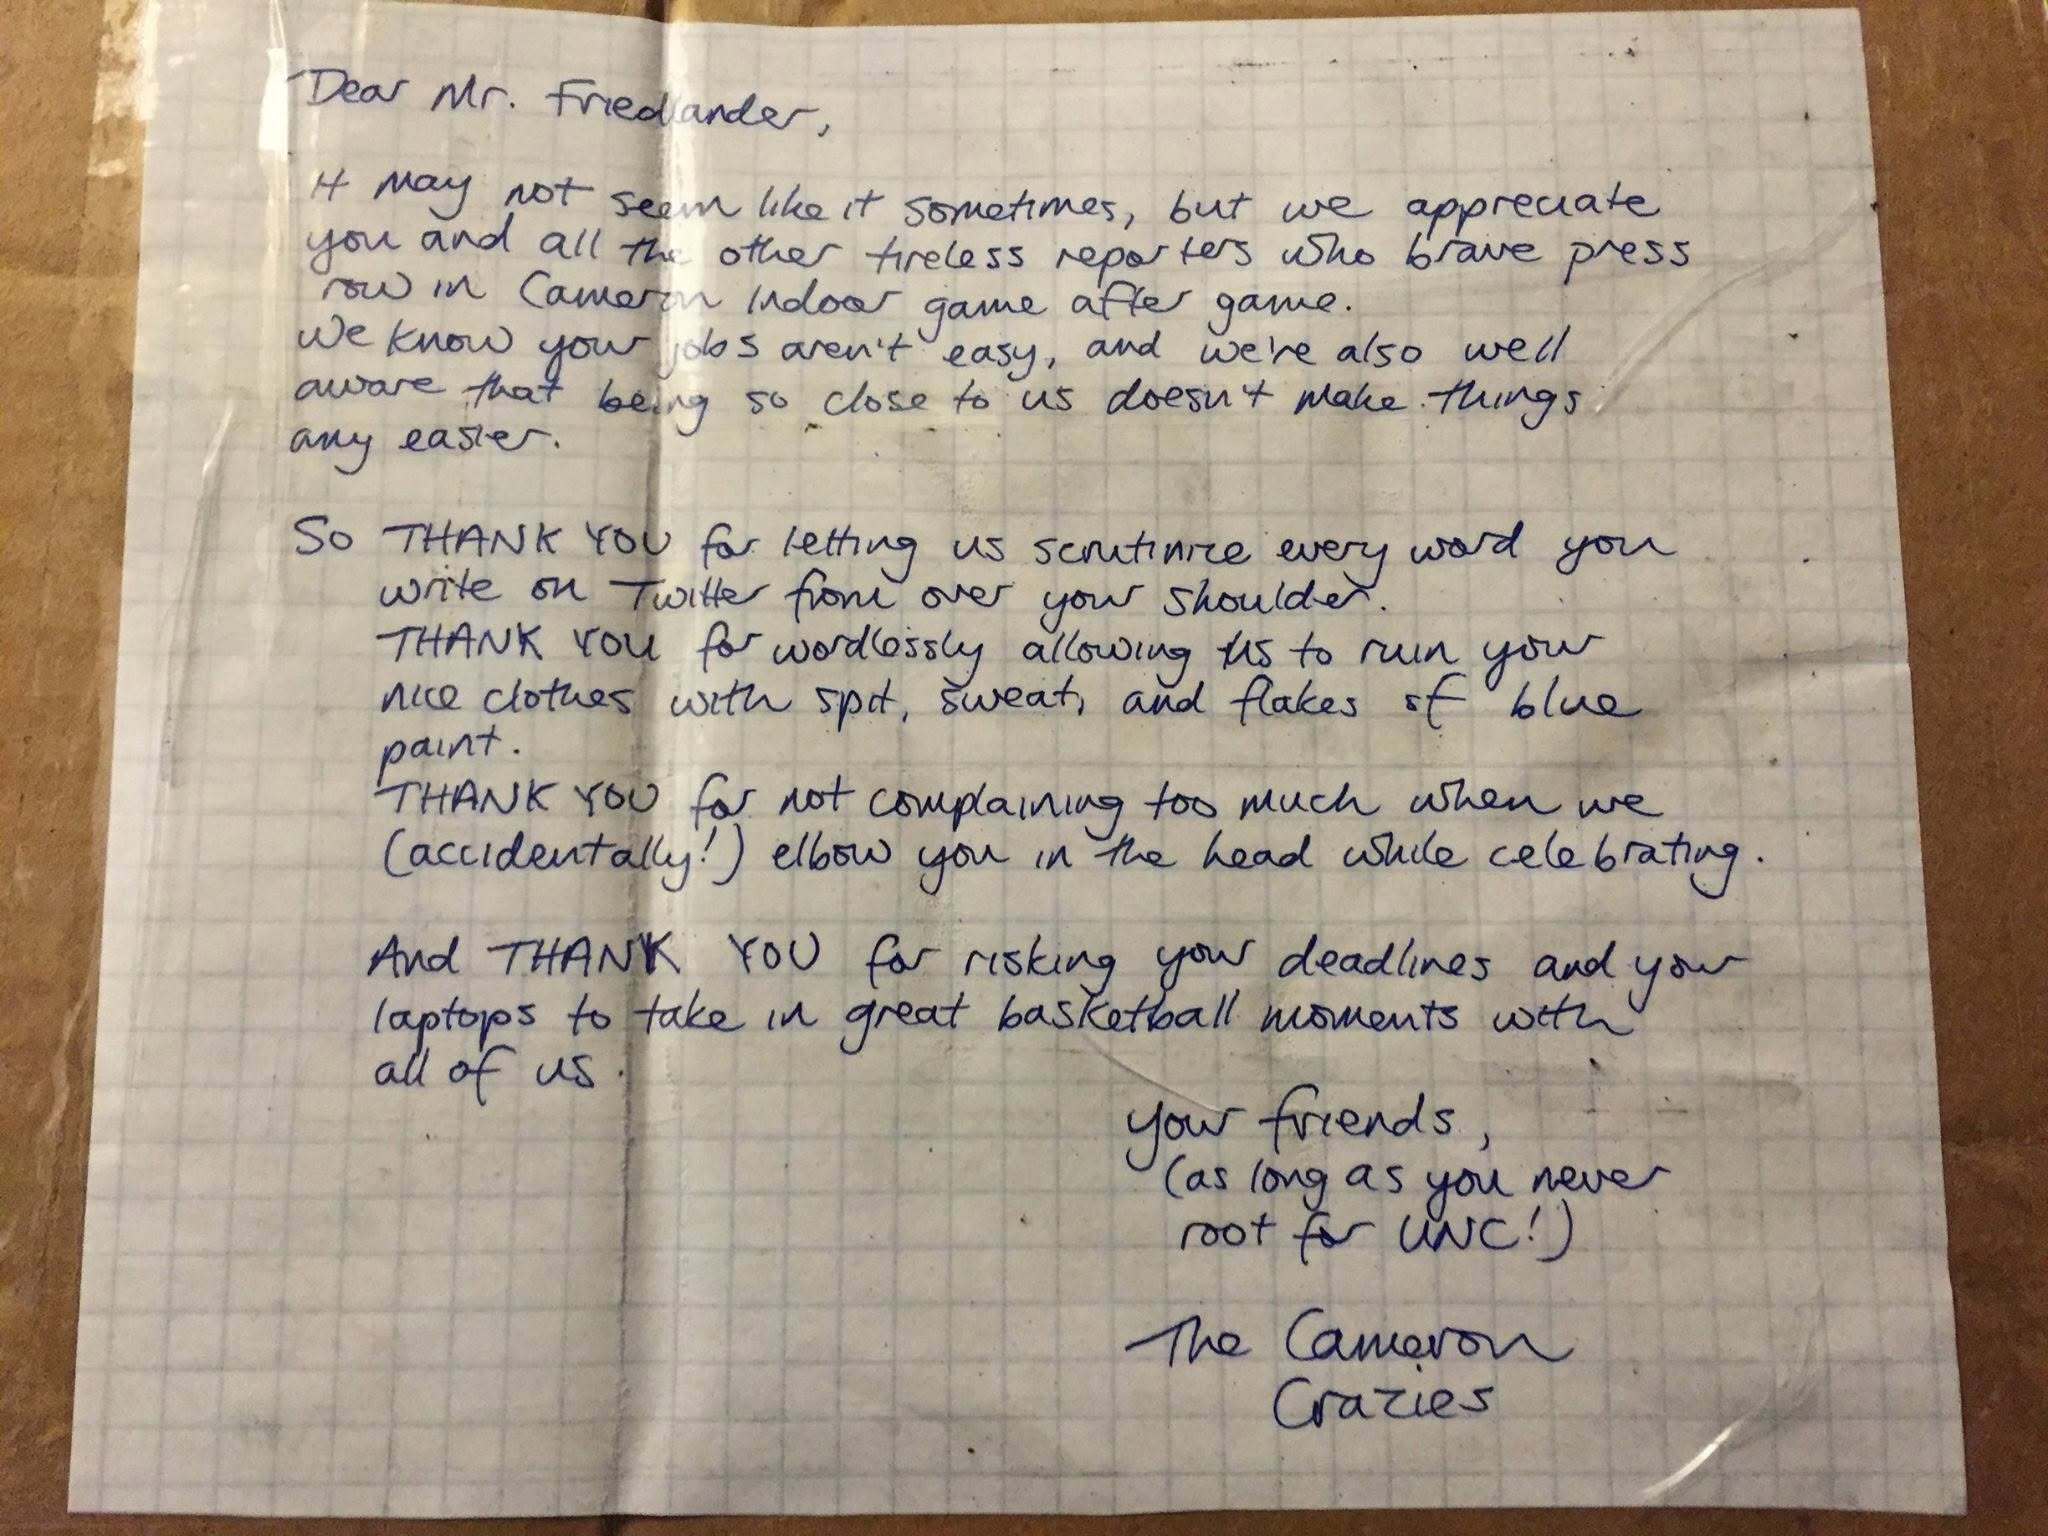 Dear Mr. Friedlander,
It may not seem like it sometimes, but we appreciate
you and all the other tireless reporters who brave press
row in Cameron Indoor game after game.
We know your jobs aren't easy, and we're also well
aware that being so close to us doesn't make things
any easier.
So THANK YOU for letting us scrutinize every word you
write on Twitter from over your shoulder.
THANK YOU for wordlessly allowing us to ruin your
nice clothes with spit, sweat, and flakes of blue
paint.
THANK YOU for not complaining too much when we
(accidentally!) elbow you in the head while celebrating.
And THANK YOU for risking your deadlines and your
laptops to take in great basketball moments with
all of us.
Your friends,
(as long as you never
root for UNC!)
The Cameron
Crazies